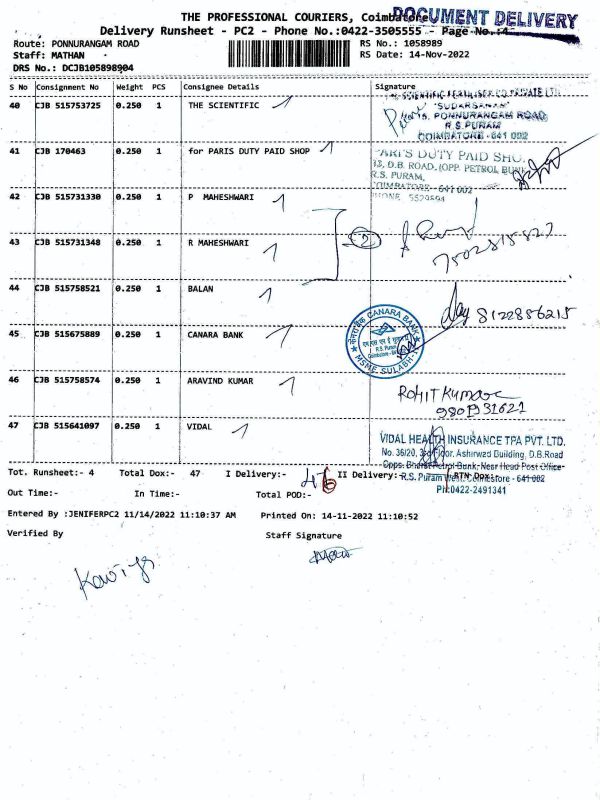 THE PROFESSIONAL COURIERS, Coimbatore
DOCUMENT DELIVERY
Delivery Runsheet - PC2 - Phone No.:0422-3505555 - Page No.:4
Route: PONNURANGAM ROAD
RS No.: 1058989
Staff: MATHAN
RS Date: 14-Nov-2022
DRS No.: DCJB105898904
S No Consignment No Weight PCS Consignee Details Signature
40 CJB 515753725 0.250 1 THE SCIENTIFIC
"SUDARSANAM"
PONNURANGAM ROAD
R.S PURAM
COIMBATORE - 641 002
41 CJB 170463 0.250 1 for PARIS DUTY PAID SHOP
D.B. ROAD, (OPP. PETROL BUNK
R.S. PURAM,
COIMBATORE - 641 002
PHONE 5520894
42 CJB 515731330 0.250 1 P MAHESHWARI
43 CJB 515731348 0.250 1 R MAHESHWARI
2
44 CJB 515758521 0.250 1 BALAN
8122886215
45 CJB 515675889 0.250 1 CANARA BANK
CANARA BANK
R.S. Puram
MSME SULABH-1
46 CJB 515758574 0.250 1 ARAVIND KUMAR
Rohit Kumar
47 CJB 515641097 0.250 1 VIDAL
VIDAL HEALTH INSURANCE TPA PVT. LTD.
No. 36/20, 3rd Floor, Ashirwad Building, D.B.Road
Opps. Bharat Petrol Bunk, Near Head Post Office
R.S. Puram West, Coimbatore - 641 002
Ph:0422-2491341
Tot. Runsheet:- 4 Total Dox:- 47 I Delivery:- II Delivery:- RTN Dox:-
Out Time:- In Time:- Total POD:-
Entered By :JENIFERPC2 11/14/2022 11:10:37 AM Printed On: 14-11-2022 11:10:52
Verified By Staff Signature